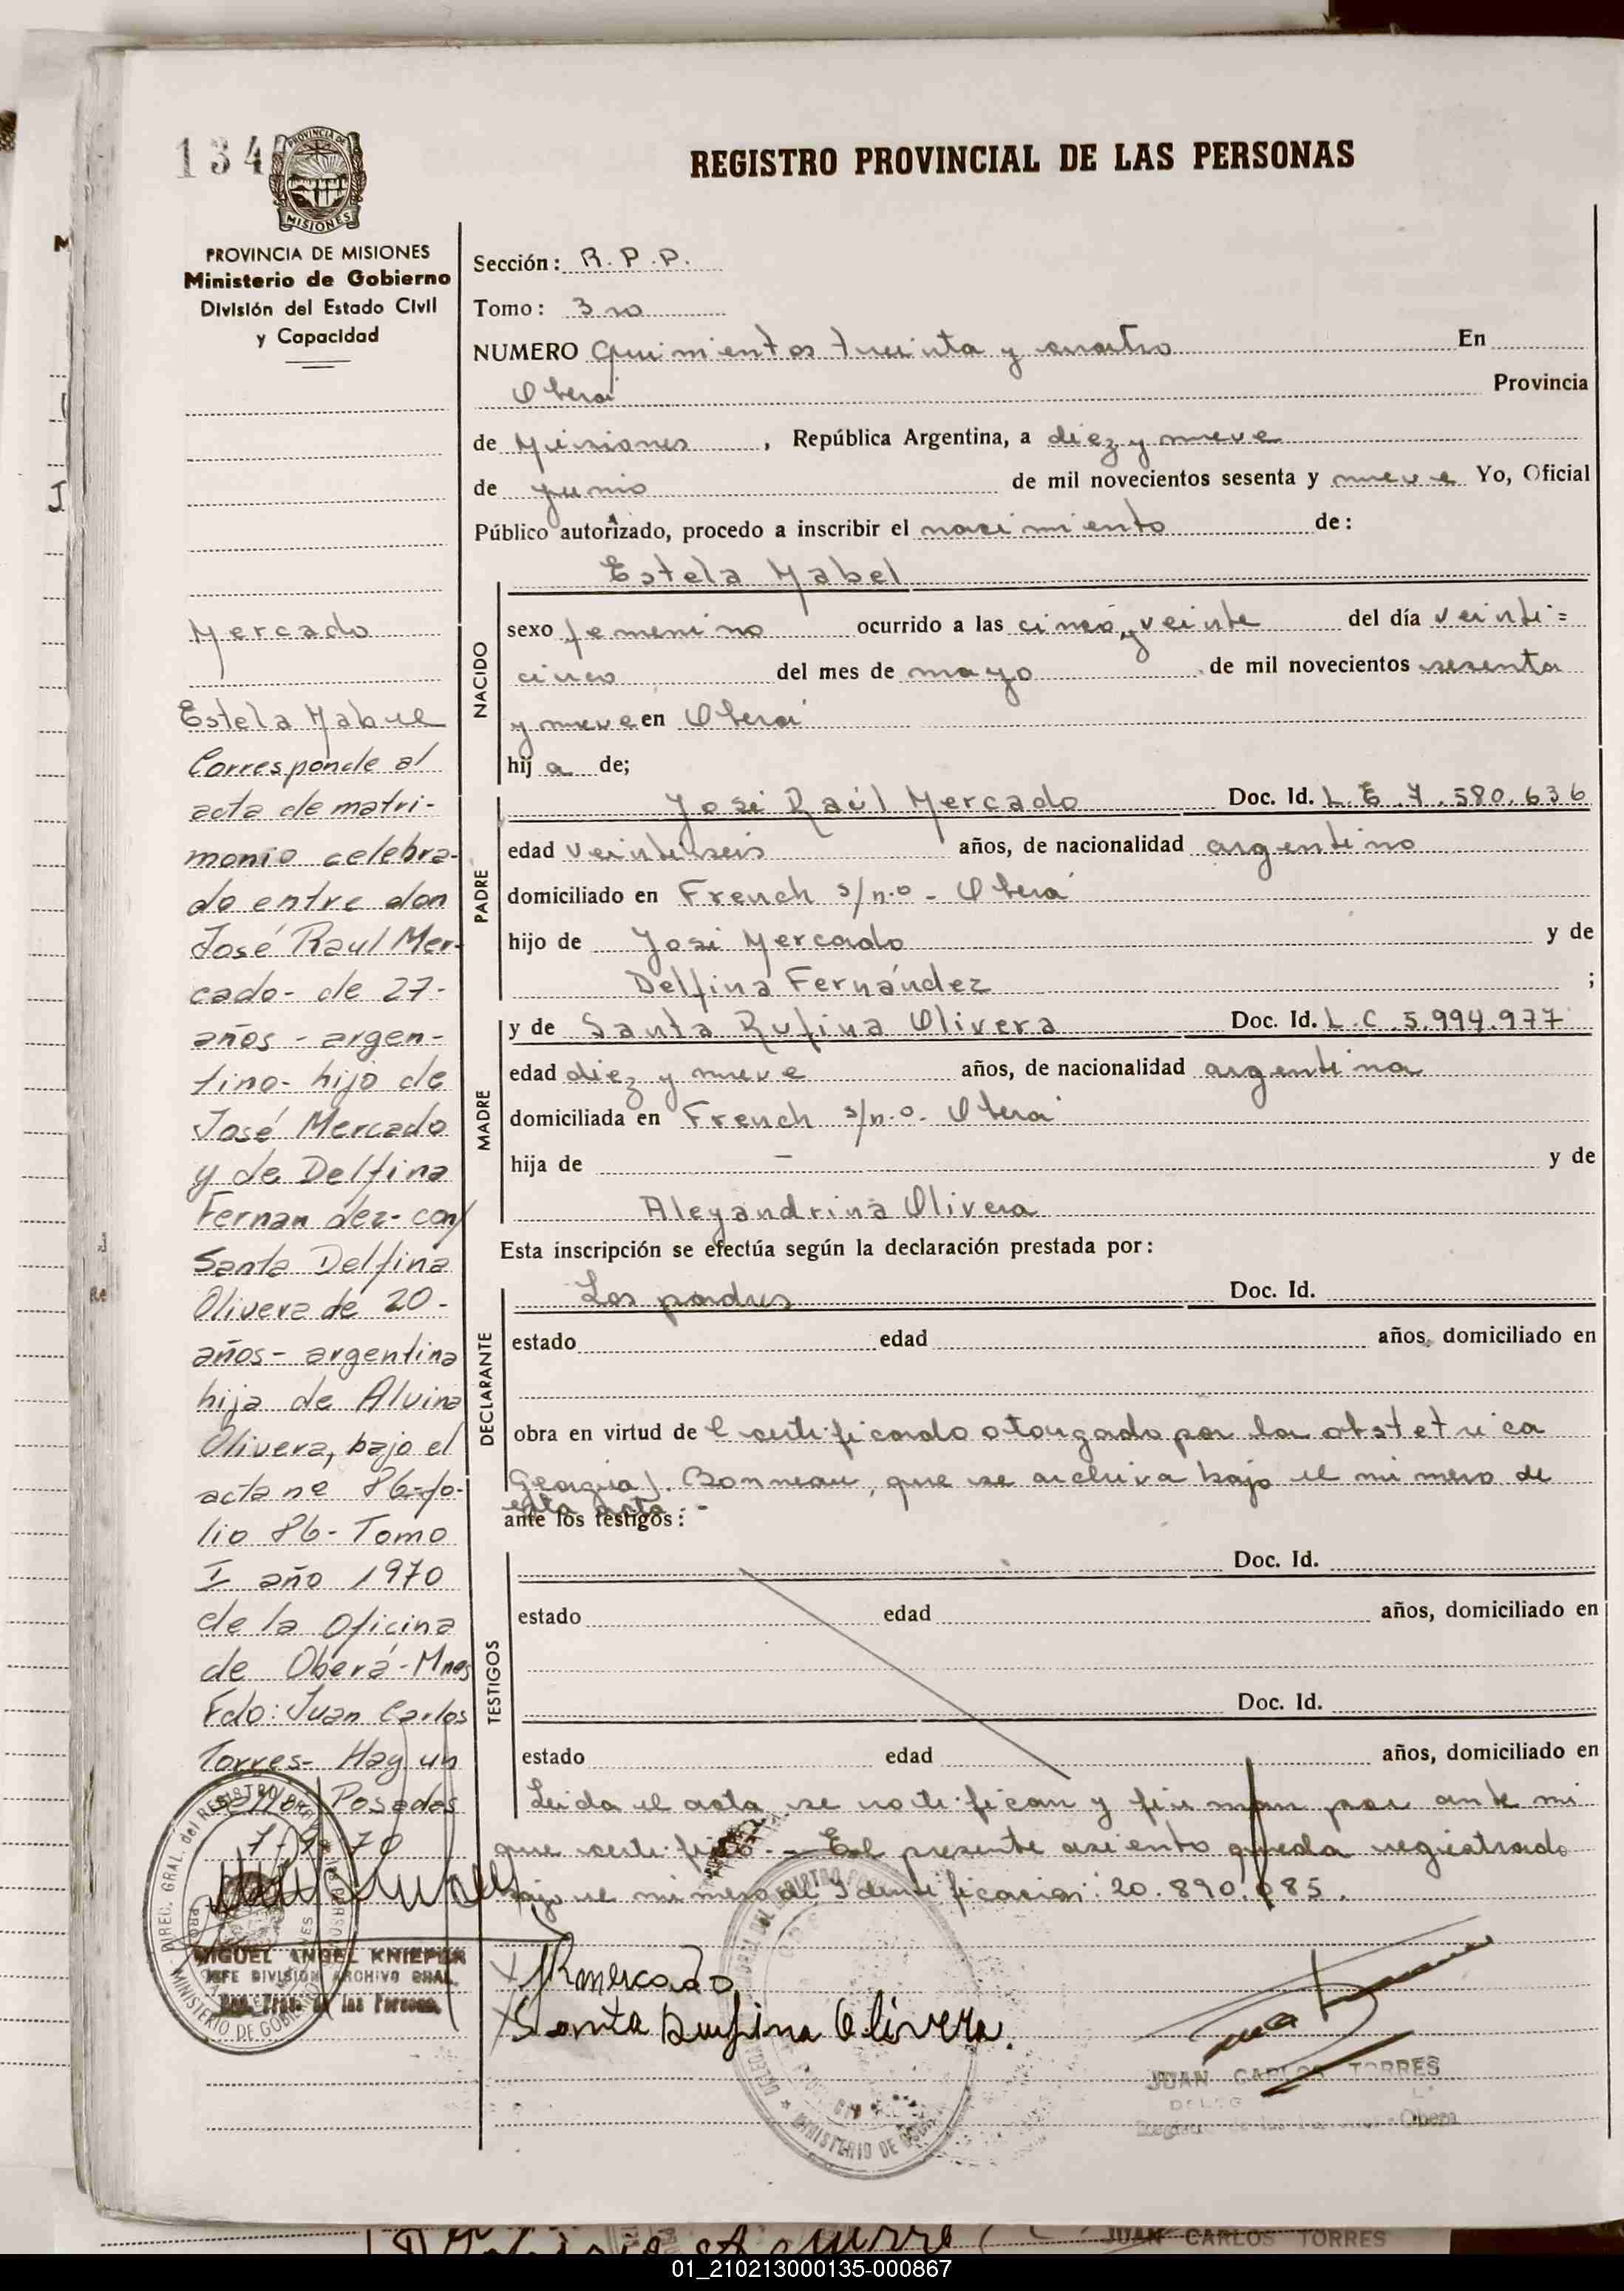 134
PROVINCIA DE
MISIONES
REGISTRO PROVINCIAL DE LAS PERSONAS
PROVINCIA DE MISIONES
Ministerio de Gobierno
División del Estado Civil
y Capacidad
Mercado
Estela Mabel
Corresponde al
acta de matri-
monio celebra-
do entre don
José Raul Mer-
cado- de 27-
años - argen-
tino- hijo de
José Mercado
y de Delfina
Fernandez- con
Santa Delfina
Olivera de 20-
años- argentina
hija de Alvina
Olivera, bajo el
acta nº 86-fo-
lio 86- Tomo
I año 1970
de la Oficina
de Oberá-Mnes
Fdo: Juan Carlos
Torres- Hay un
sello. Posadas
7-9-70
MIGUEL ANGEL KNIEPER
JEFE DIVISION ARCHIVO GRAL.
Reg. Prov. de las Personas
DIREC. GRAL. del REGISTRO
MINISTERIO DE GOBIERNO
Sección: R.P.P.
Tomo: 3ro
NUMERO Quinientos treinta y cuatro En
Oberá Provincia
de Misiones, República Argentina, a diez y nueve
de junio de mil novecientos sesenta y nueve Yo, Oficial
Público autorizado, procedo a inscribir el nacimiento de:
Estela Mabel
NACIDO
sexo femenino ocurrido a las cinco y veinte del día veinti=
cinco del mes de mayo de mil novecientos sesenta
y nueve en Oberá
hija de;
PADRE
José Raúl Mercado Doc. Id. L.E.7.580.636
edad veintiseis años, de nacionalidad argentino
domiciliado en French s/n.o - Oberá
hijo de José Mercado y de
Delfina Fernández ;
MADRE
y de Santa Rufina Olivera Doc. Id. L.C.5.994.977
edad diez y nueve años, de nacionalidad argentina
domiciliada en French s/n.o. Oberá
hija de - y de
Aleyandrina Olivera
Esta inscripción se efectúa según la declaración prestada por:
DECLARANTE
Los padres Doc. Id.
estado edad años, domiciliado en
obra en virtud de l certificado otorgado por la obstetrica
Georgia J. Bonneau, que se archiva bajo el número de
esta acta.-
ante los testigos:
TESTIGOS
Doc. Id.
estado edad años, domiciliado en
Doc. Id.
estado edad años, domiciliado en
Leida el acta se notifican y firman por ante mi
que certifico.- El presente asiento queda registrado
bajo el número de Identificación: 20.890.085.
JRmercado
Santa Rufina Olivera.
MINISTERIO DE
JUAN CARLOS TORRES
Oberá
JUAN CARLOS TORRES
01_210213000135-000867